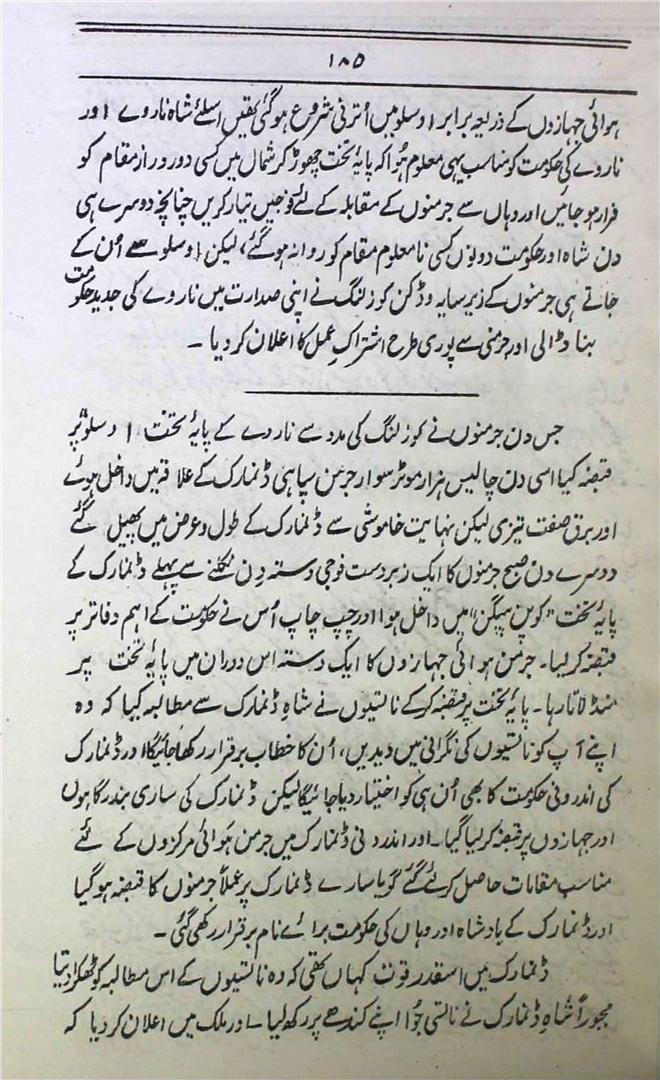 ۱۸۵
ہوائی جہازوں کے ذریعہ برابر اوسلو میں اُترنی شروع ہو گئی تھیں اسلئے شاہ ناروے اور
ناروے کی حکومت کو مناسب یہی معلوم ہُوا کہ پایۂ تخت چھوڑ کر شمال میں کسی دور دراز مقام کو
فرار ہو جائیں اور وہاں سے جرمنوں کے مقابلہ کے لئے فوجیں تیار کریں چنانچہ دوسرے ہی
دن شاہ اور حکومت دونوں کسی نامعلوم مقام کو روانہ ہو گئے، لیکن اوسلو سے اُن کے
جاتے ہی جرمنوں کے زیر سایہ وڈکن کوزلنگ نے اپنی صدارت میں ناروے کی جدید حکومت
بنا ڈالی اور جرمنی سے پوری طرح اشتراکِ عمل کا اعلان کر دیا ۔
جس دن جرمنوں نے کوزلنگ کی مدد سے ناروے کے پایۂ تخت اوسلو پر
قبضہ کیا اسی دن چالیس ہزار موٹر سوار جرمن سپاہی ڈنمارک کے علاقہ میں داخل ہوئے
اور برق صفت تیزی لیکن نہایت خاموشی سے ڈنمارک کے طول و عرض میں پھیل گئے
دوسرے دن صبح جرمنوں کا ایک زبردست فوجی دستہ دِن نکلنے سے پہلے ڈنمارک کے
پایۂ تخت "کوپن ہیگن" میں داخل ہوا اور چپ چاپ اُس نے حکومت کے اہم دفاتر پر
قبضہ کر لیا۔ جرمن ہوائی جہازوں کا ایک دستہ اس دوران میں پایۂ تخت پر
منڈلاتا رہا۔ پایۂ تخت پر قبضہ کر کے ناتسیوں نے شاہِ ڈنمارک سے مطالبہ کیا کہ وہ
اپنے آپ کو ناتسیوں کی نگرانی میں دیدیں، اُن کا خطاب برقرار رکھا جائیگا اور ڈنمارک
کی اندرونی حکومت کا بھی اُن ہی کو اختیار دیا جائیگا لیکن ڈنمارک کی ساری بندرگاہوں
اور جہازوں پر قبضہ کر لیا گیا۔ اور اندرونی ڈنمارک میں جرمن ہَوائی مرکزوں کے لئے
مناسب مقامات حاصل کر لئے گئے گویا سارے ڈنمارک پر عملاً جرمنوں کا قبضہ ہو گیا
اور ڈنمارک کے بادشاہ اور وہاں کی حکومت برائے نام برقرار رکھی گئی ۔
ڈنمارک میں اسقدر قوت کہاں تھی کہ وہ ناتسیوں کے اس مطالبہ کو ٹھکرا دیتا
مجبوراً شاہِ ڈنمارک نے ناتسی جُوا اپنے کندھے پر رکھ لیا۔ اور ملک میں اعلان کر دیا کہ